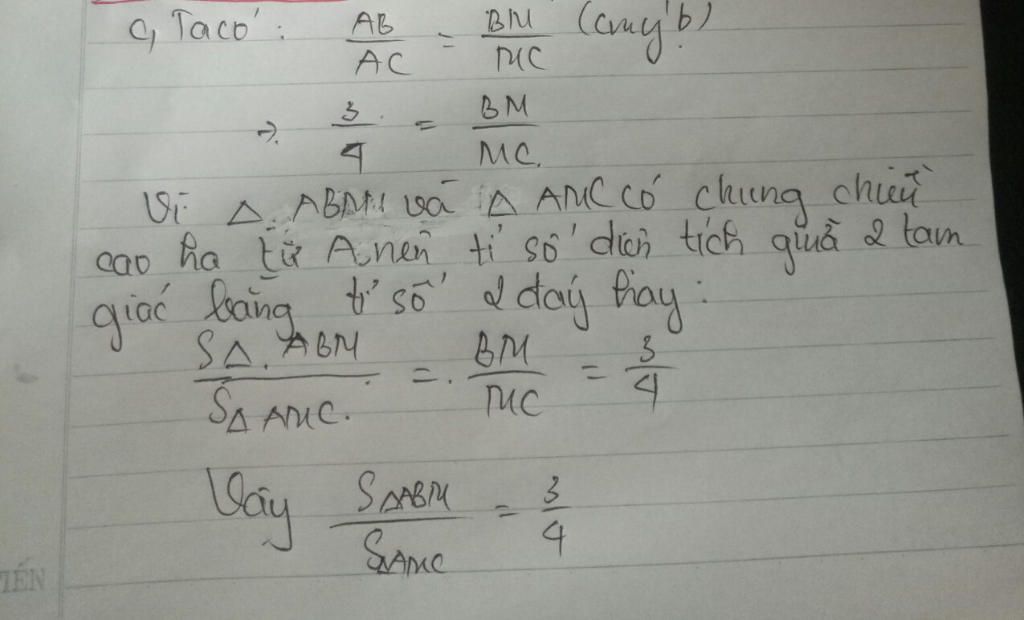 c, Ta có: AB/AC = BM/MC (cm ý b)
→ 3/4 = BM/MC.
Vì Δ ABM và Δ AMC có chung chiều
cao hạ từ A nên tỉ số diện tích giữa 2 tam
giác bằng tỉ số 2 đáy hay:
SΔ.ABM/SΔAMC. = BM/MC = 3/4
Vậy SΔABM/SΔAMC = 3/4
TIẾN